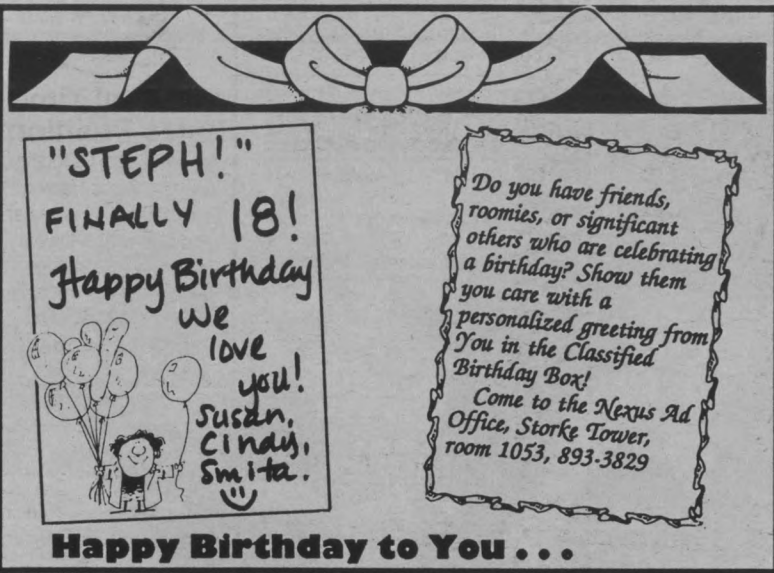 "STEPH!"
FINALLY 18!
Happy Birthday
We
love
you!
Susan,
Cindy,
Smita.
Do you have friends,
roomies, or significant
others who are celebrating
a birthday? Show them
you care with a
personalized greeting from
You in the Classified
Birthday Box!
Come to the Nexus Ad
Office, Storke Tower,
room 1053, 893-3829
Happy Birthday to You . . .